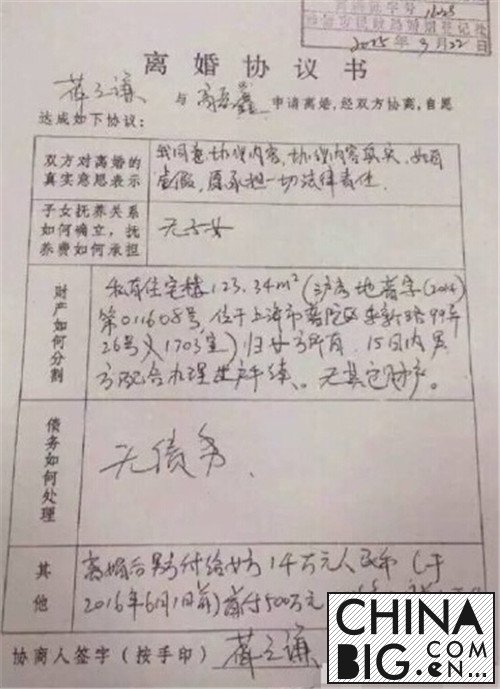 2015年9月22
离婚协议书
薛之谦 与 高磊鑫 申请离婚,经双方协商,自愿
达成如下协议:
双方对离婚的
真实意思表示
我同意协议内容,协议内容真实,如有
虚假,愿承担一切法律责任.
子女抚养关系
如何确立,抚
养费如何承担
无子女
财产如何分割
私有住宅楼123.34m²(沪房地普字(2014)
第011608号,位于上海市普陀区东新路99弄
26号 1703室)归女方所有,15日内男
方配合办理过户手续。无其它财产。
债务如何处理
无债务.
其他
离婚后男方付给女方1千万元人民币(于
2016年6月1日前)首付500万元
协商人签字(按手印) 薛之谦
CHINA
BIG.COM
.CN